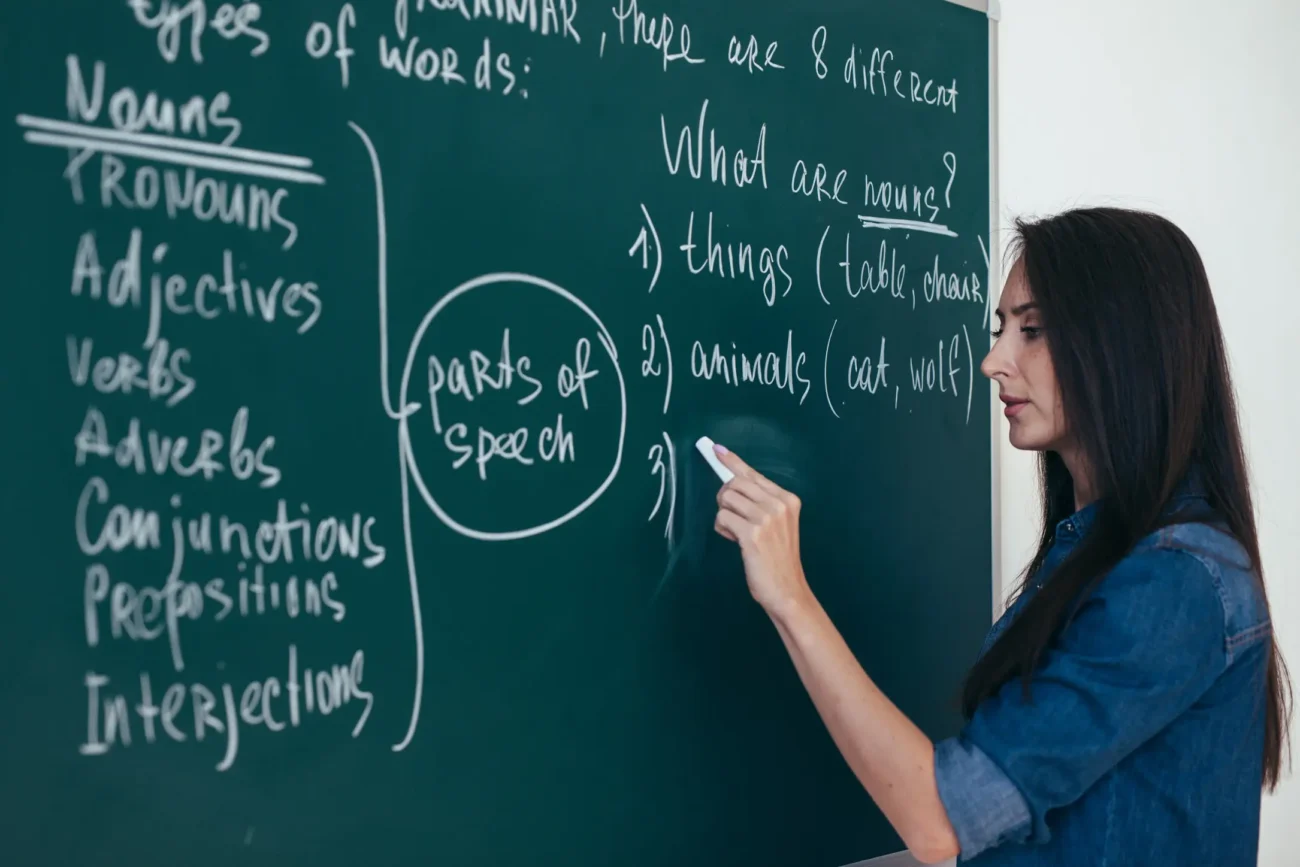 grammar, there are 8 different
types of words:
Nouns
Pronouns
Adjectives
Verbs
Adverbs
Conjunctions
Prepositions
Interjections
parts of
speech
What are nouns?
1) things (table, chair)
2) animals (cat, wolf)
3)